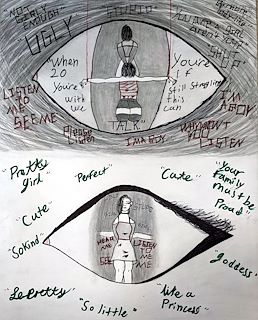 UGLY
"STUPID"
"When
20
You're
with
we
You're
If
Still Struggling
this
can
LISTEN
TO
ME
SEE ME
Please
Listen
"TALK"
IM A BOY
IM A
BOY
WHY WON'T
YOU
LISTEN
"Pretty
girl"
"Perfect"
"Cute"
"Your
family
must be
Proud"
"Cute"
"So kind"
HEAR
ME
SEE
ME
LISTEN
TO
ME
"goddess"
"So little"
"like a
Princess"